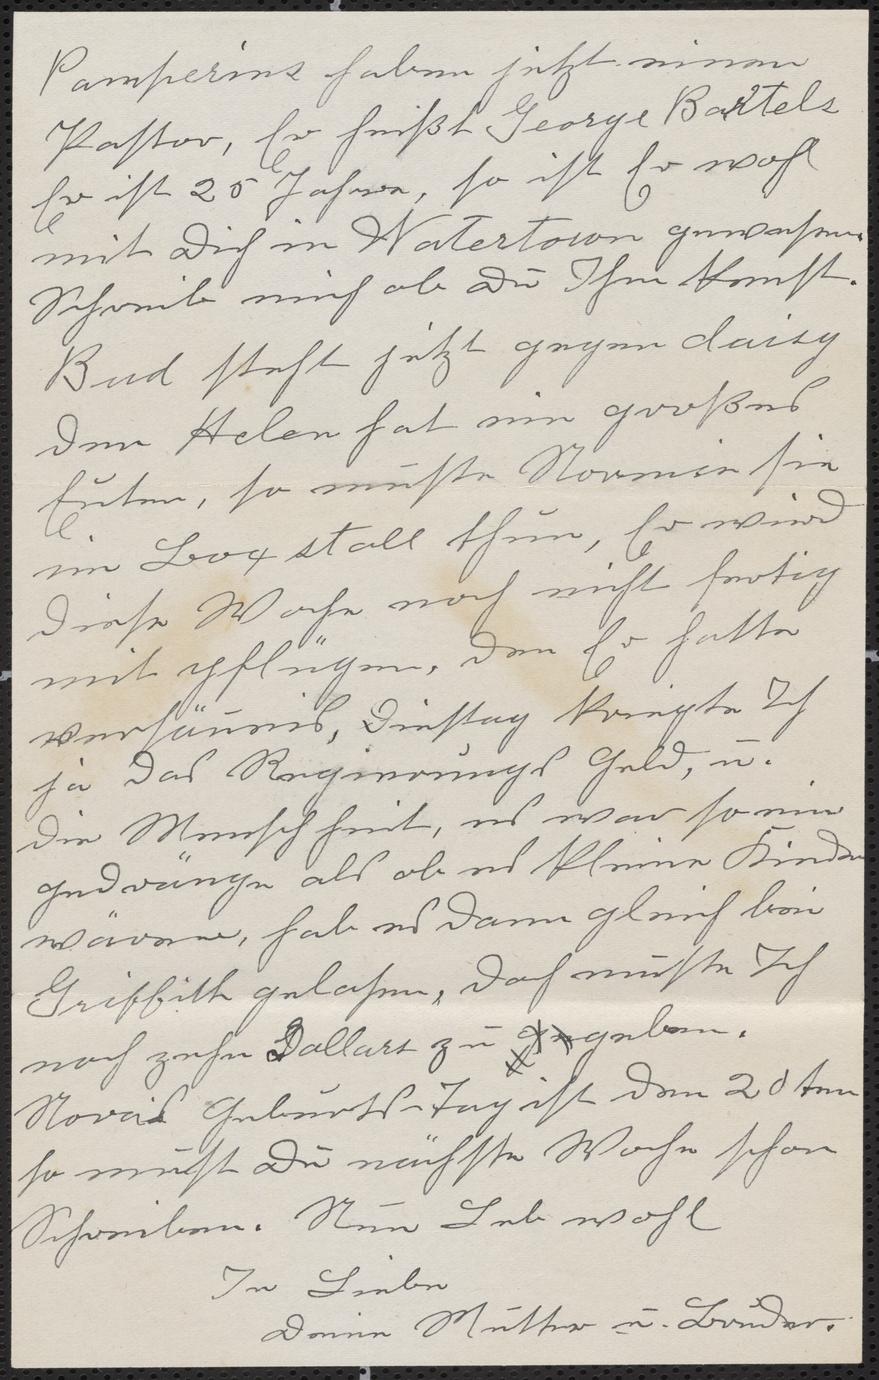 Pamperins haben jetzt einen
Pastor, Er heißt George Bartels
Er ist 25 Jahre, so ist Er wohl
mit Dich in Watertown gewesen.
Schreib mich ob Du Ihn kenst.
Bud steht jetzt gegen daisy
den Helen hat ein großes
Euter, so muste Normie sie
im Box stall thun, Er wird
diese Woche noch nicht fertig
mit pflügen, den Er hatte
versäumis, Dienstag kriegte Ich
ja das Regierungs Geld, u.
die Menschheit, es war so ein
gedränge als ob es kleine Kinder
wären, hab es dann gleich bei
Griffith gelassen, doch muste Ich
noch zehn Dollars zu geben.
Novas Geburts-Tag ist den 20ten
so must Du nächste Woche schon
Schreiben. Nun Leb wohl
In Liebe
Deine Mutter u. Bruder.